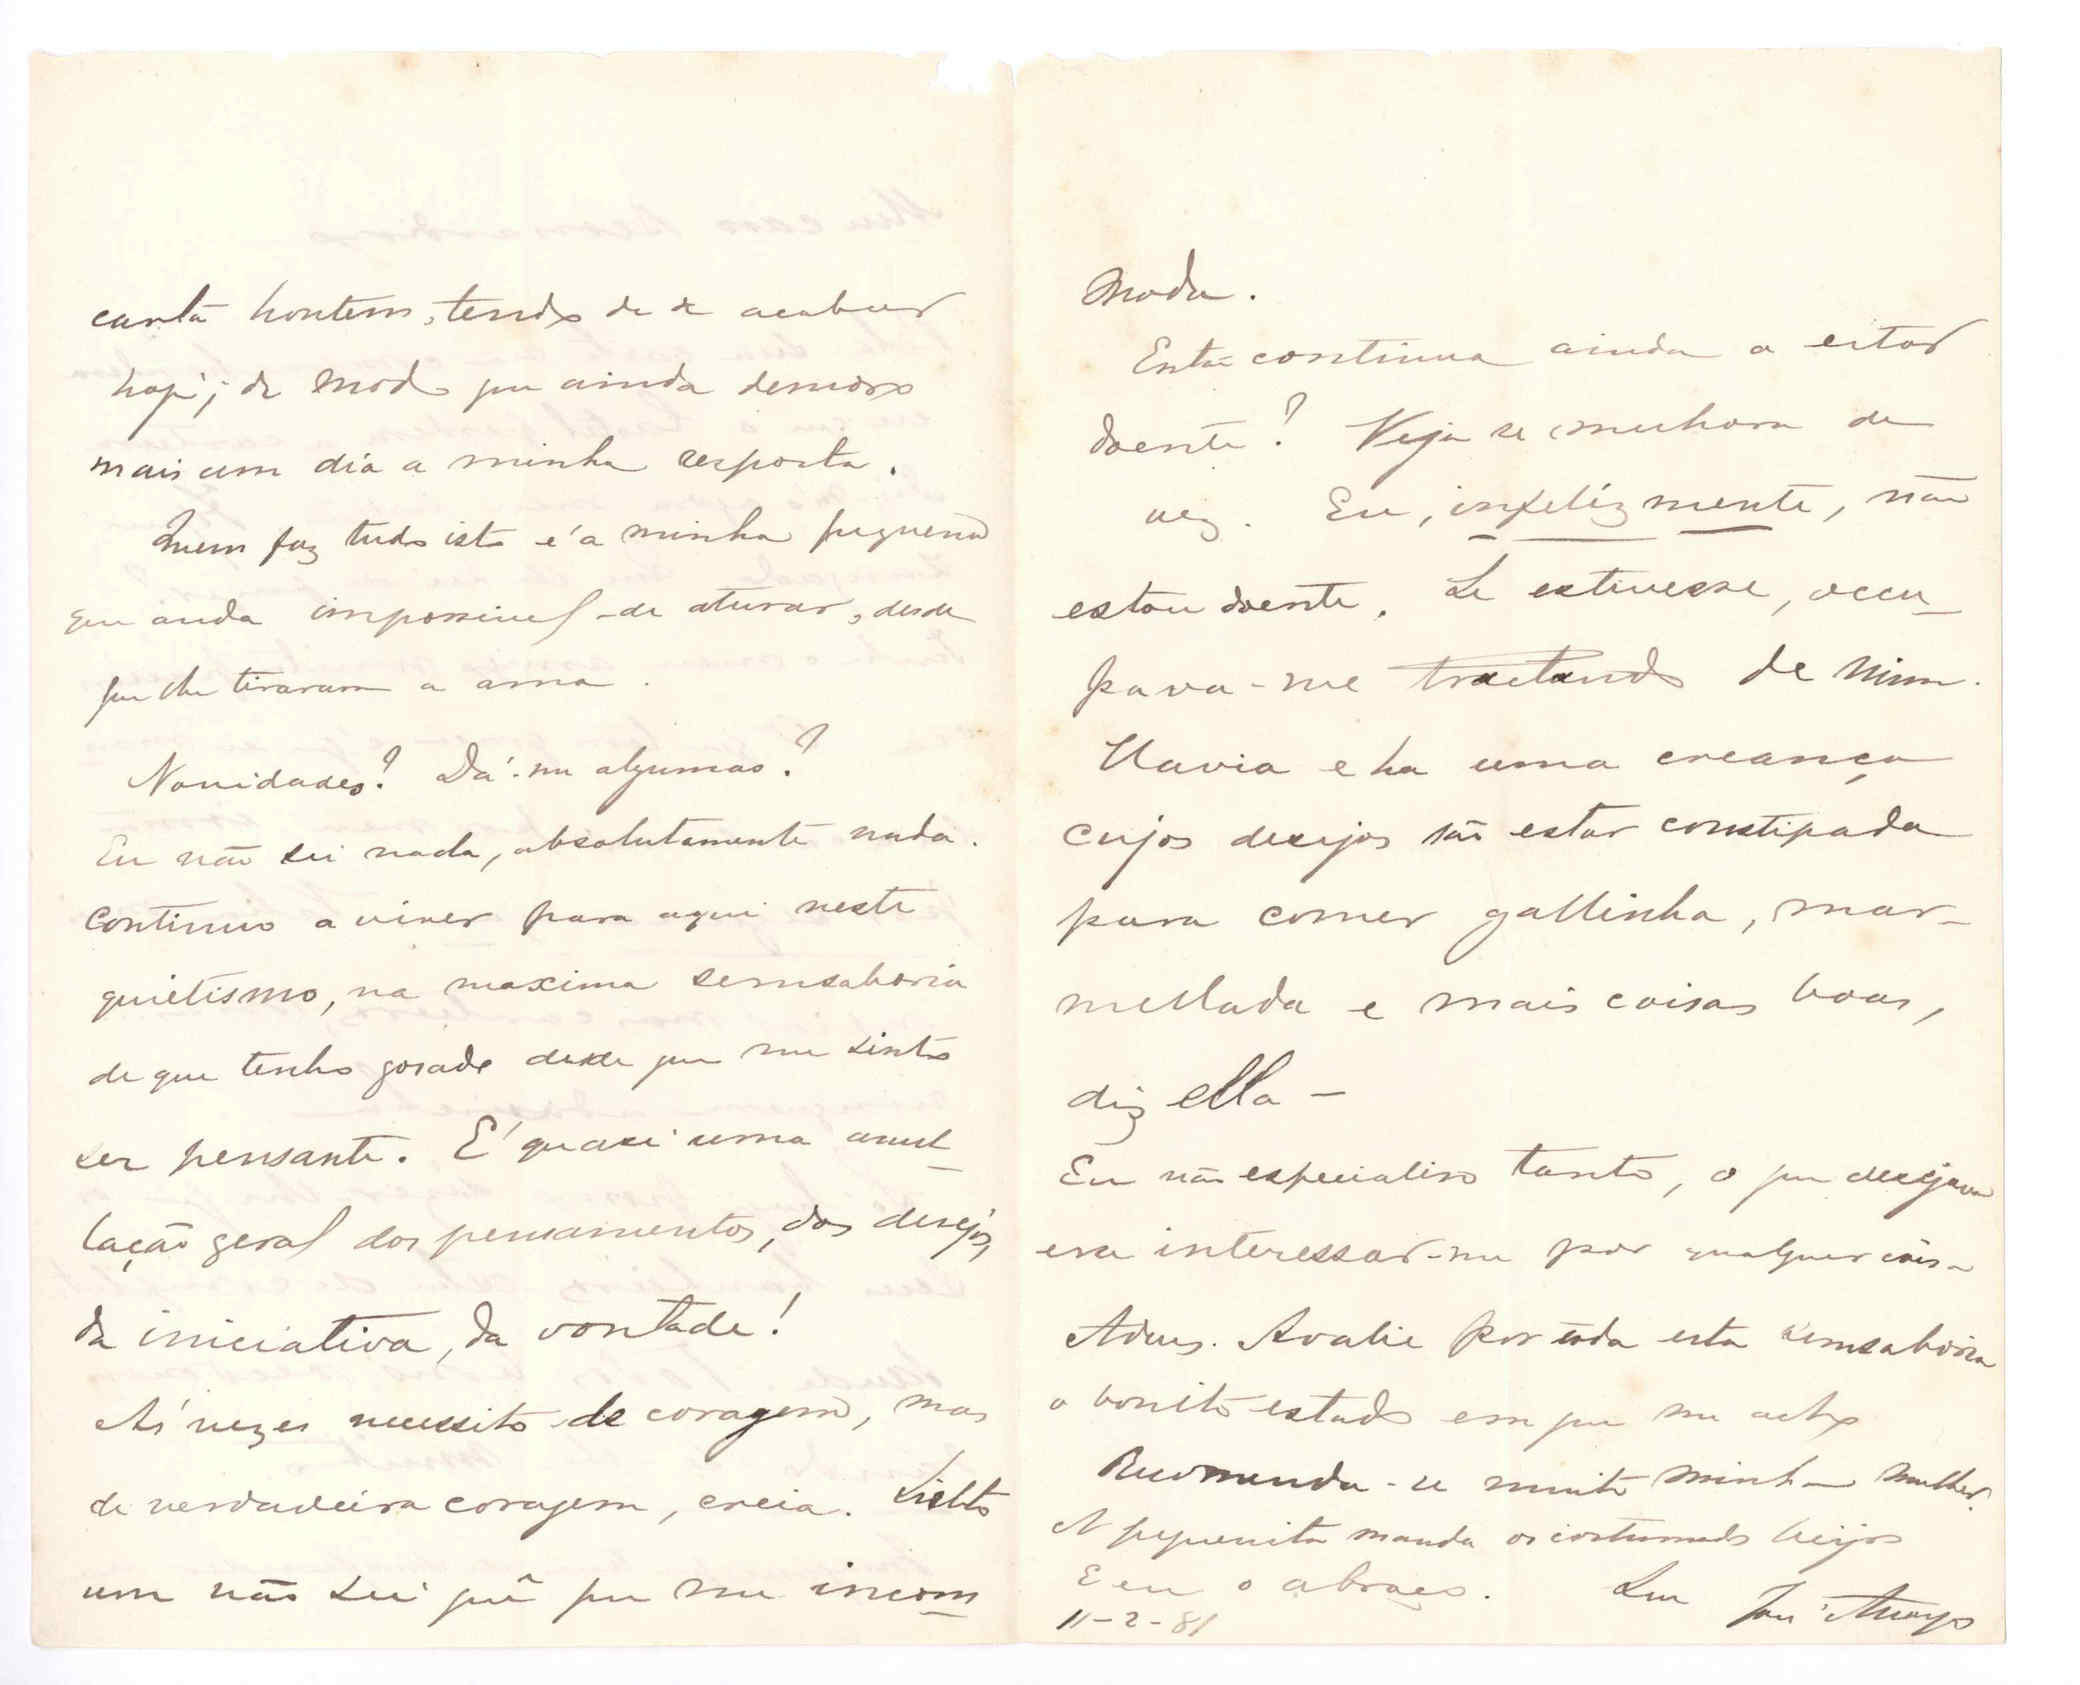 carta hontem, tendo de a acabar
hoje; de modo que ainda demoro
mais um dia a minha resposta.
Quem faz tudo isto é a minha pequena
que anda impossivel de aturar, desde
que lhe tiraram a ama.
Novidades? Dá-me algumas?
Eu não sei nada, absolutamente nada.
Continuo a viver para aqui neste
quietismo, na maxima semsaboria
de que tenho gosado desde que me sinto
ser pensante. É quasi uma anul-
lação geral dos pensamentos, dos desejos,
da iniciativa, da vontade!
Ás vezes necessito de coragem, mas
de verdadeira coragem, creia. Sinto
um não sei quê que me incom-
moda.
Então continua ainda a estar
doente? Veja se melhora de
vez. Eu, infelizmente, não
estou doente. Se estivesse, occu-
pava-me tractando de mim.
Havia e ha uma creança
cujos desejos são estar constipada
para comer gallinha, mar-
mellada e mais coisas boas,
diz ella -
Eu não especialiso tanto, o que desejava
era interessar-me por qualquer coisa
Adeus. Avalie por toda esta semsaboria
o bonito estado em que me acho
Recomenda-se muito minha mulher.
A pequenita manda os costumados beijos
E eu o abraço. Seu José
11-2-81